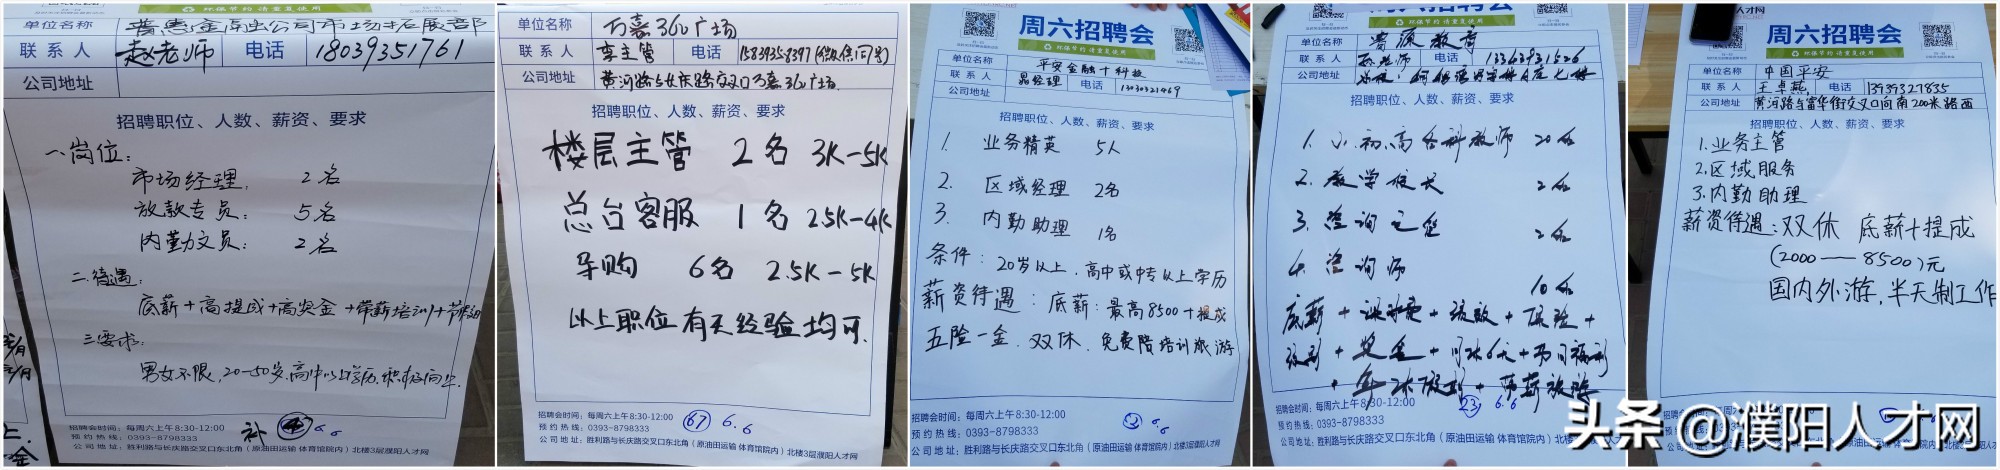 单位名称 普惠金原业公司市场拓展部
联系人 赵老师 电话 18039351761
公司地址
招聘职位、人数、薪资、要求
一岗位:
市场经理, 2名
放款专员: 5名
内勤文员: 2名
二.待遇:
底薪+高提成+高奖金+带薪培训+节
三要求:
男女不限, 20-50岁, 高中以上学历,积极向上.
招聘会时间: 每周六上午8:30-12:00
预约热线: 0393-8798333
补 6.6
公司地址: 胜利路与长庆路交叉口东北角(原油田运输 体育馆院内)北楼3层濮阳人才网
单位名称 万嘉360广场
联系人 李主管 电话 15839357397(微信同号)
公司地址 黄河路与长庆路交叉口万嘉360广场.
招聘职位、人数、薪资、要求
楼层主管 2名 3K-5K
总台客服 1名 2.5K-4K
导购 6名 2.5K-5K
以上职位有无经验均可.
招聘会时间: 每周六上午8:30-12:00
67 6.6
预约热线: 0393-8798333
公司地址: 胜利路与长庆路交叉口东北角(原油田运输 体育馆院内)北楼3层濮阳人才网
周六招聘会
环保节约 请重复使用
单位名称 平安金融+科技
联系人 晁经理 电话
公司地址
招聘职位、人数、薪资、要求
1. 业务精英 5人
2. 区域经理 2名
3. 内勤助理 1名
条件: 20岁以上, 高中或中专以上学历
薪资待遇: 底薪: 最高8500+提成
五险一金. 双休. 免费陪培训旅游
招聘会时间: 每周六上午8:30-12:00
预约热线: 0393-8798333
6.6
公司地址: 胜利路与长庆路交叉口东北角(原油田运输 体育馆院内)北楼3层濮阳人才网
周六招聘会
环保节约 请重复使用
单位名称 教育
联系人 老师 电话 13663931526
公司地址
招聘职位、人数、薪资、要求
1. 小.初.高各科教师 20名
2. 教学校长 2名
3. 咨询主管 2名
4. 咨询师 10名
底薪+课时费+绩效+保险+
+奖金+月休6天+节日福利
+年休假期+带薪
招聘会时间: 每周六上午8:30-12:00
23 6.6
预约热线: 0393-8798333
公司地址: 胜利路与长庆路交叉口东北角(原油田运输 体育馆院内)北楼3层濮阳人才网
人才网
周六招聘会
环保节约 请重复使用
单位名称 中国平安
联系人 王卓燕, 电话 13939327835
公司地址 黄河路与富华街交叉口向南200米路西
招聘职位、人数、薪资、要求
1.业务主管
2.区域服务
3.内勤助理
薪资待遇: 双休 底薪+提成
(2000——8500)元
国内外游, 半天制工作
招聘会时间:
预约热线:
公司地址:
头条 @濮阳人才网